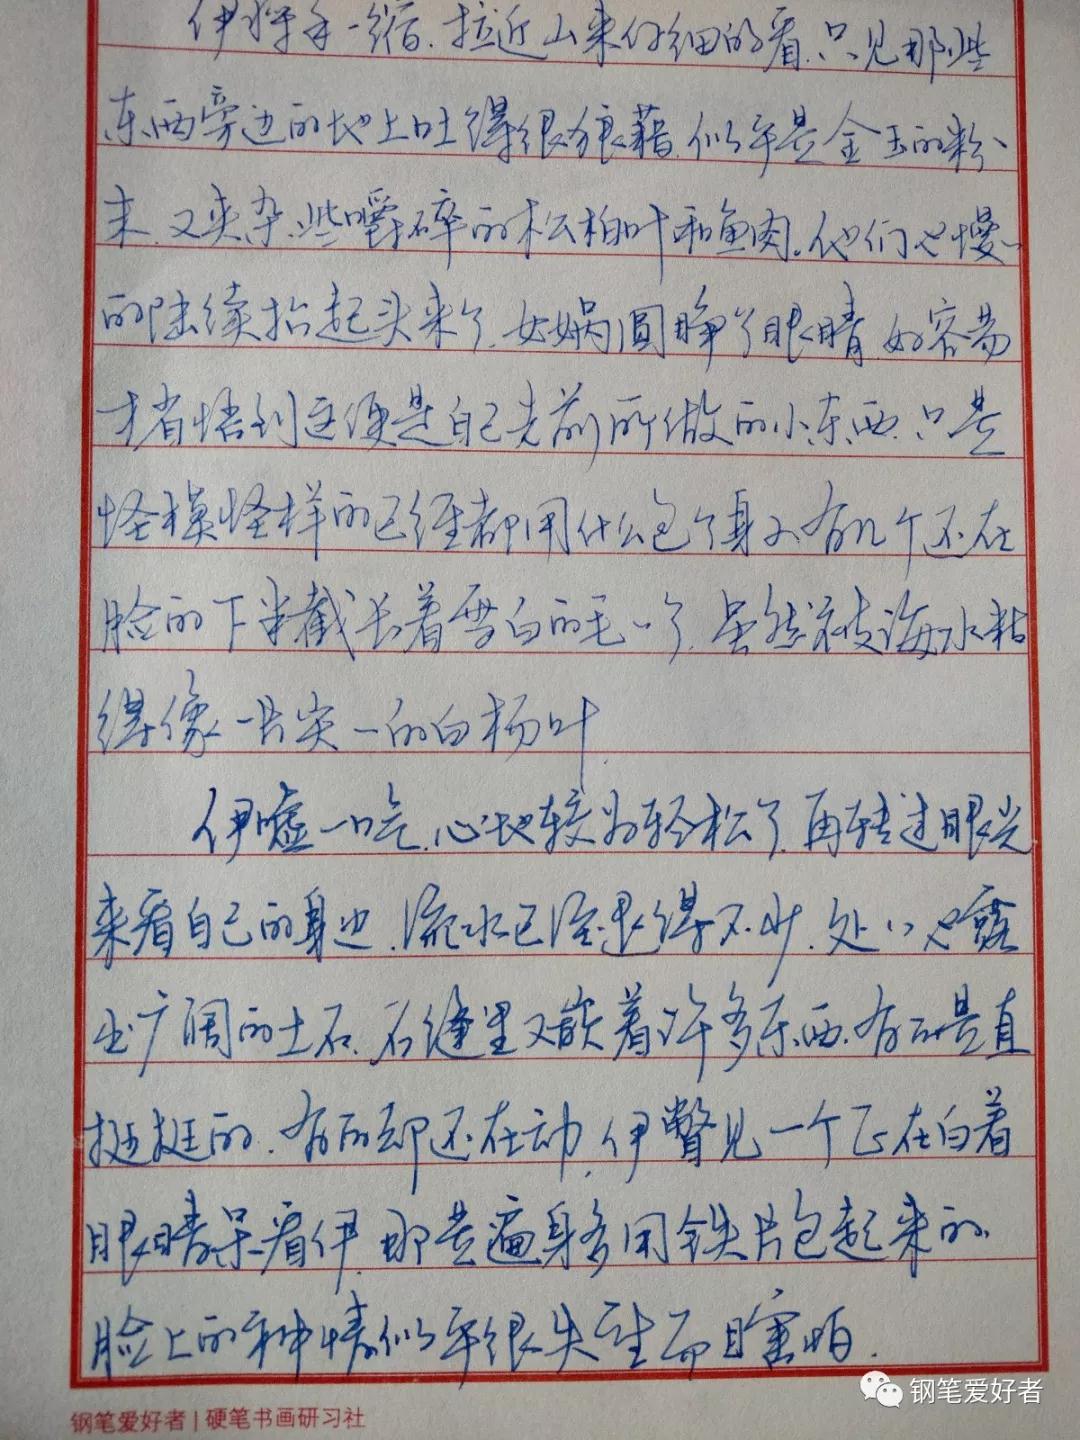 伊将手一缩，拉近山来仔细的看，只见那些
东西旁边的地上吐得很狼藉，似乎是金玉的粉
末，又夹杂些嚼碎的松柏叶和鱼肉。他们也慢慢
的陆续抬起头来了，女娲圆睁了眼睛，好容易
才省悟到这便是自己先前所做的小东西，只是
怪模怪样的已经都用什么包了身子，有几个还在
脸的下半截长着雪白的毛毛了，虽然被海水粘
得像一片尖尖的白杨叶。
伊嘘一口气，心地较为轻松了，再转过眼光
来看自己的身边，流水已经退得不少，处处也露
出广阔的土石，石缝里又嵌着许多东西，有的是直
挺挺的，有的却还在动，伊瞥见一个正在白着
眼睛呆看伊，那是遍身多用铁片包起来的，
脸上的神情似乎很失望而且害怕。
钢笔爱好者
钢笔爱好者 | 硬笔书画研习社